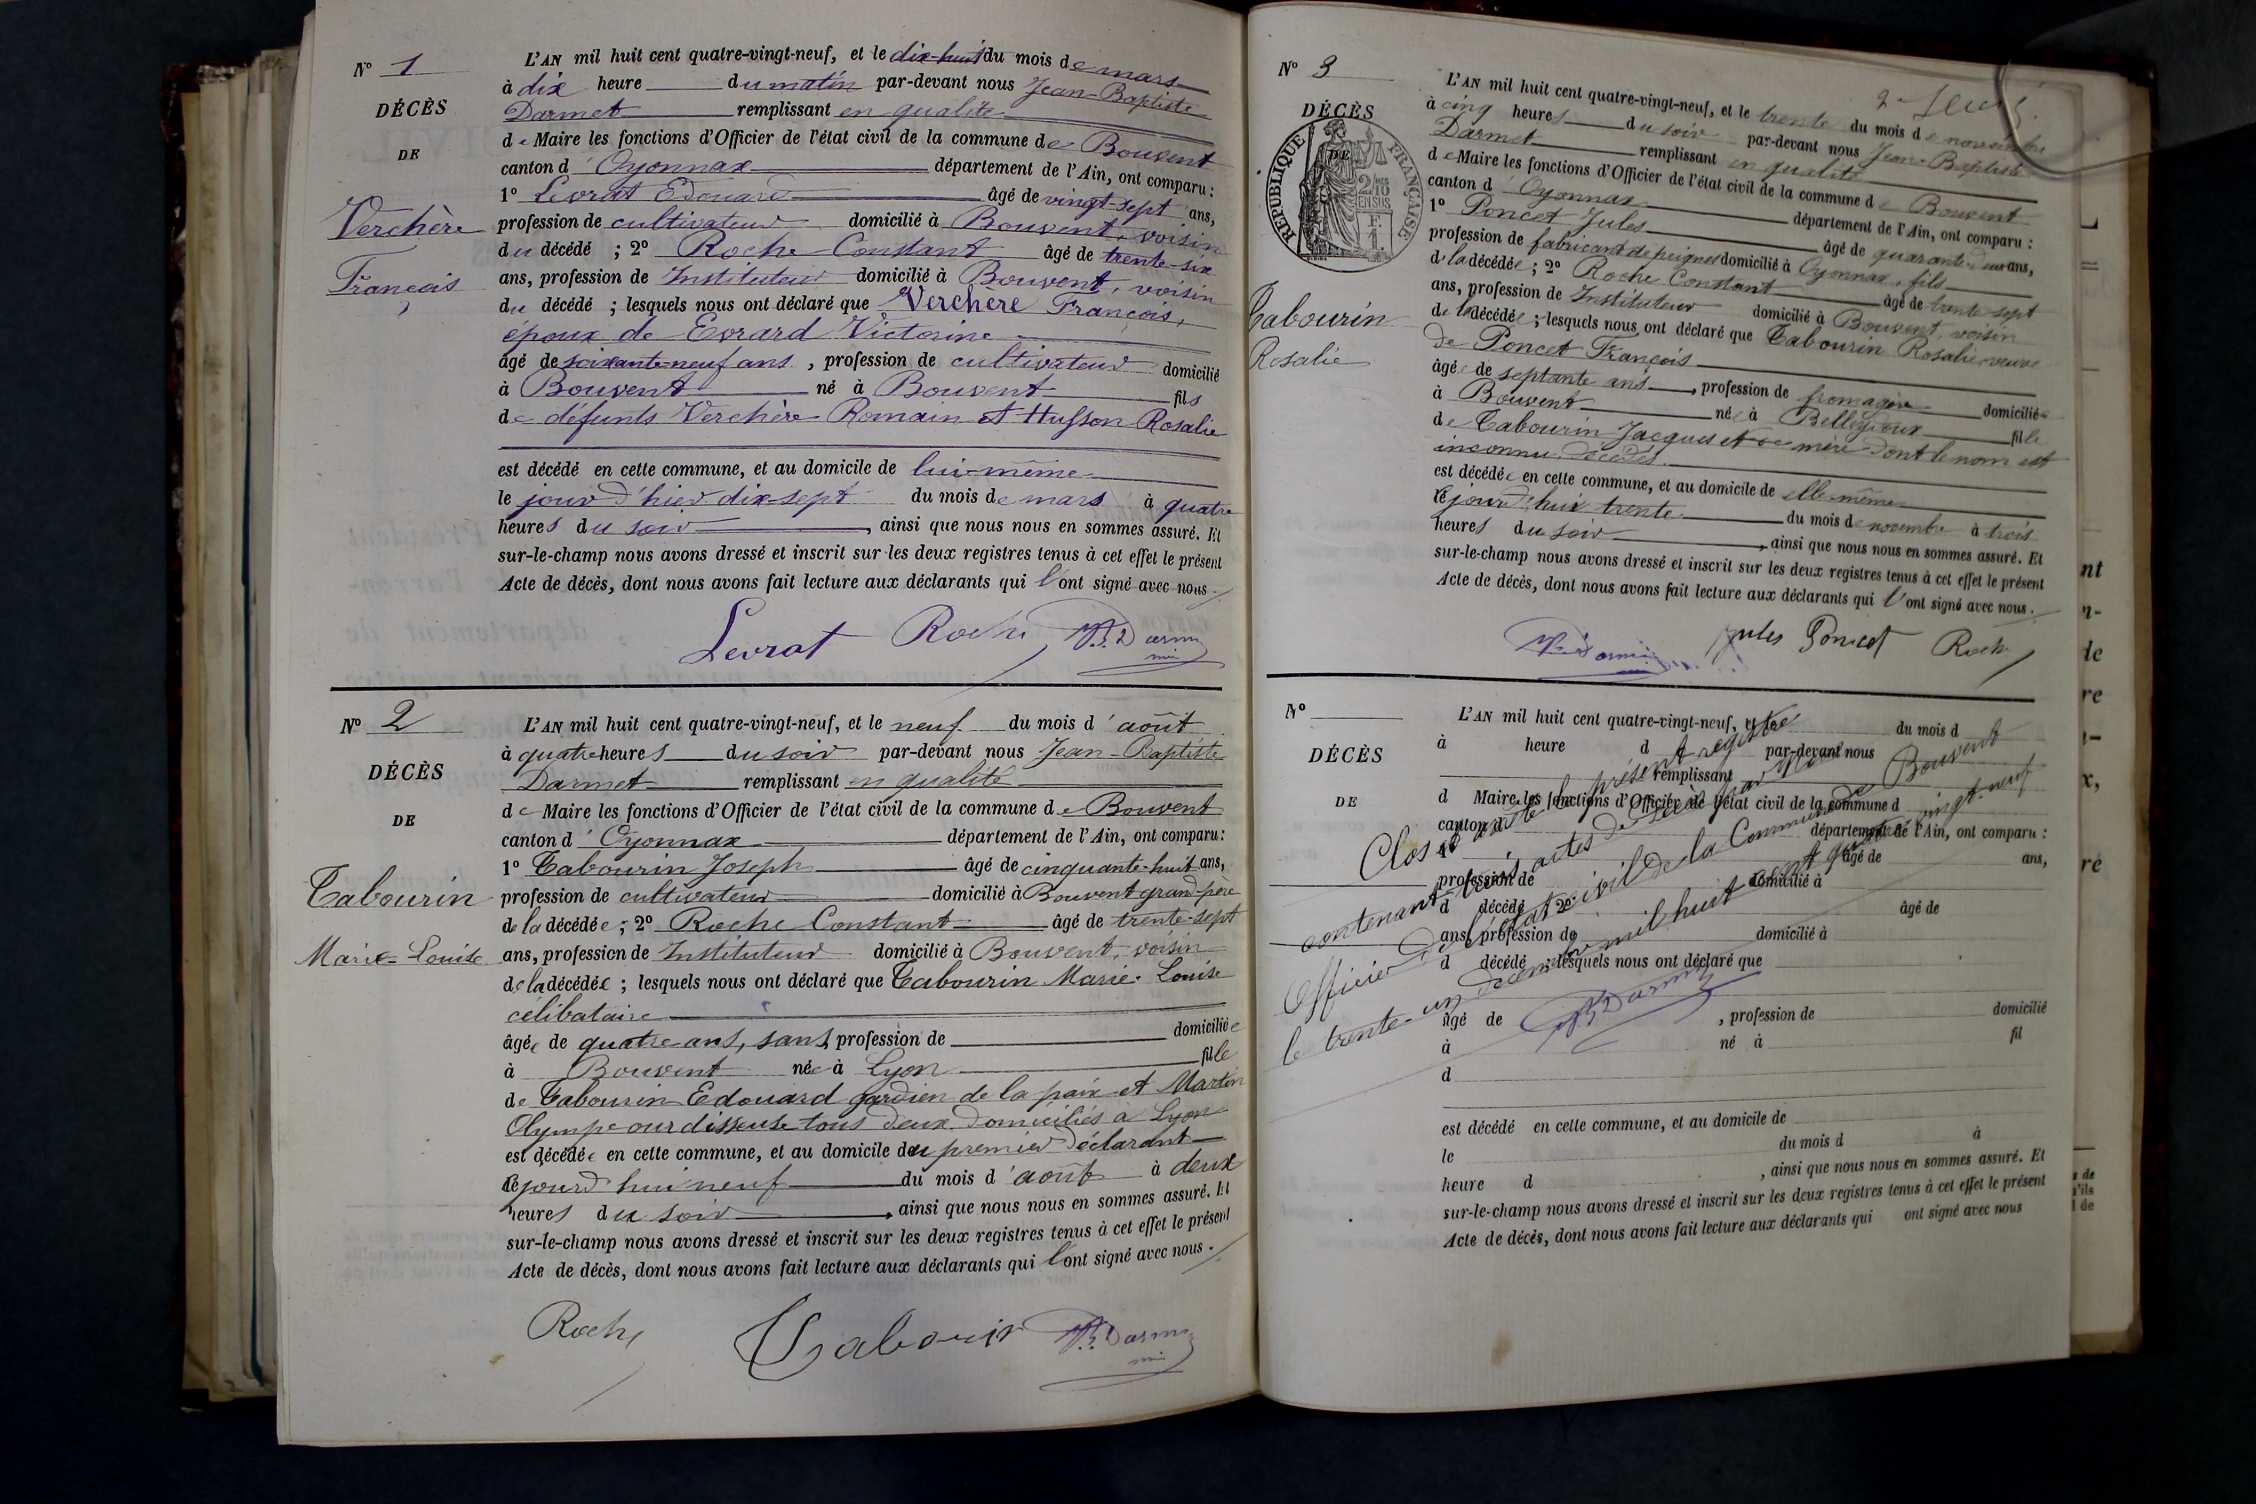 N° 1
DÉCÈS
DE
Verchère
François
L'AN mil huit cent quatre-vingt-neuf, et le dix-huit du mois de mars
à dix heure du matin par-devant nous Jean-Baptiste
Darmet remplissant en qualité
de Maire les fonctions d'Officier de l'état civil de la commune de Bouvent
canton d'Oyonnax département de l'Ain, ont comparu :
1° Levrat Edouard âgé de vingt-sept ans,
profession de cultivateur domicilié à Bouvent, voisin
du décédé ; 2° Roche Constant âgé de trente-six
ans, profession de Instituteur domicilié à Bouvent, voisin
du décédé ; lesquels nous ont déclaré que Verchère François,
époux de Evrard Victorine
âgé de soixante-neuf ans, profession de cultivateur domicilié
à Bouvent né à Bouvent fils
de défunts Verchère Romain et Husson Rosalie
est décédé en cette commune, et au domicile de lui-même
le jour d'hier dix-sept du mois de mars à quatre
heures du soir, ainsi que nous nous en sommes assuré. Et
sur-le-champ nous avons dressé et inscrit sur les deux registres tenus à cet effet le présent
Acte de décès, dont nous avons fait lecture aux déclarants qui l'ont signé avec nous.
Levrat Roche Darmet
N° 2
DÉCÈS
DE
Tabourin
Marie-Louise
L'AN mil huit cent quatre-vingt-neuf, et le neuf du mois d'août
à quatre heures du soir par-devant nous Jean-Baptiste
Darmet remplissant en qualité
de Maire les fonctions d'Officier de l'état civil de la commune de Bouvent
canton d'Oyonnax département de l'Ain, ont comparu :
1° Tabourin Joseph âgé de cinquante-huit ans,
profession de cultivateur domicilié à Bouvent grand-père
de la décédée ; 2° Roche Constant âgé de trente-sept
ans, profession de Instituteur domicilié à Bouvent, voisin
de la décédée ; lesquels nous ont déclaré que Tabourin Marie-Louise
célibataire
âgée de quatre ans, sans profession de domiciliée
à Bouvent née à Lyon fille
de Tabourin Edouard gardien de la paix et Martin
Olympe ourdisseuse tous deux domiciliés à Lyon
est décédée en cette commune, et au domicile du premier déclarant
le jourd'hui neuf du mois d'août à deux
heures du soir, ainsi que nous nous en sommes assuré. Et
sur-le-champ nous avons dressé et inscrit sur les deux registres tenus à cet effet le présent
Acte de décès, dont nous avons fait lecture aux déclarants qui l'ont signé avec nous.
Roche Tabourin Darmet
N° 3
DÉCÈS
DE
RÉPUBLIQUE FRANÇAISE
2/10 EN SUS
F. 1.
Tabourin
Rosalie
L'AN mil huit cent quatre-vingt-neuf, et le trente du mois de novembre
à cinq heures du soir par-devant nous Jean-Baptiste
Darmet remplissant en qualité
de Maire les fonctions d'Officier de l'état civil de la commune de Bouvent
canton d'Oyonnax département de l'Ain, ont comparu :
1° Poncet Jules âgé de quarante-deux ans,
profession de fabricant de peignes domicilié à Oyonnax, fils
de la décédée ; 2° Roche Constant âgé de trente-sept
ans, profession de Instituteur domicilié à Bouvent, voisin
de la décédée ; lesquels nous ont déclaré que Tabourin Rosalie veuve
de Poncet François
âgée de septante ans, profession de fromagère domiciliée
à Bouvent née à Belleydoux fille
de Tabourin Jacques et de mère dont le nom est
inconnu, décédés.
est décédée en cette commune, et au domicile de elle-même
le jourd'hui trente du mois de novembre à trois
heures du soir, ainsi que nous nous en sommes assuré. Et
sur-le-champ nous avons dressé et inscrit sur les deux registres tenus à cet effet le présent
Acte de décès, dont nous avons fait lecture aux déclarants qui l'ont signé avec nous.
Darmet Jules Poncet Roche
N°
DÉCÈS
DE
L'AN mil huit cent quatre-vingt-neuf, et le du mois d
à heure d par-devant nous
remplissant
d Maire les fonctions d'Officier de l'état civil de la commune d
canton d département de l'Ain, ont comparu :
1° âgé de ans,
profession de domicilié à
d décédé ; 2° âgé de
ans, profession de domicilié à
d décédé ; lesquels nous ont déclaré que
âgé de , profession de domicilié
à né à fil
d
est décédé en cette commune, et au domicile de
le du mois d à
heure d , ainsi que nous nous en sommes assuré. Et
sur-le-champ nous avons dressé et inscrit sur les deux registres tenus à cet effet le présent
Acte de décès, dont nous avons fait lecture aux déclarants qui ont signé avec nous
Clos et arrêté le présent registre
contenant trois actes de décès par Nous
Officier de l'état-civil de la Commune de Bouvent
le trente-un décembre mil huit cent quatre-vingt-neuf
Darmet